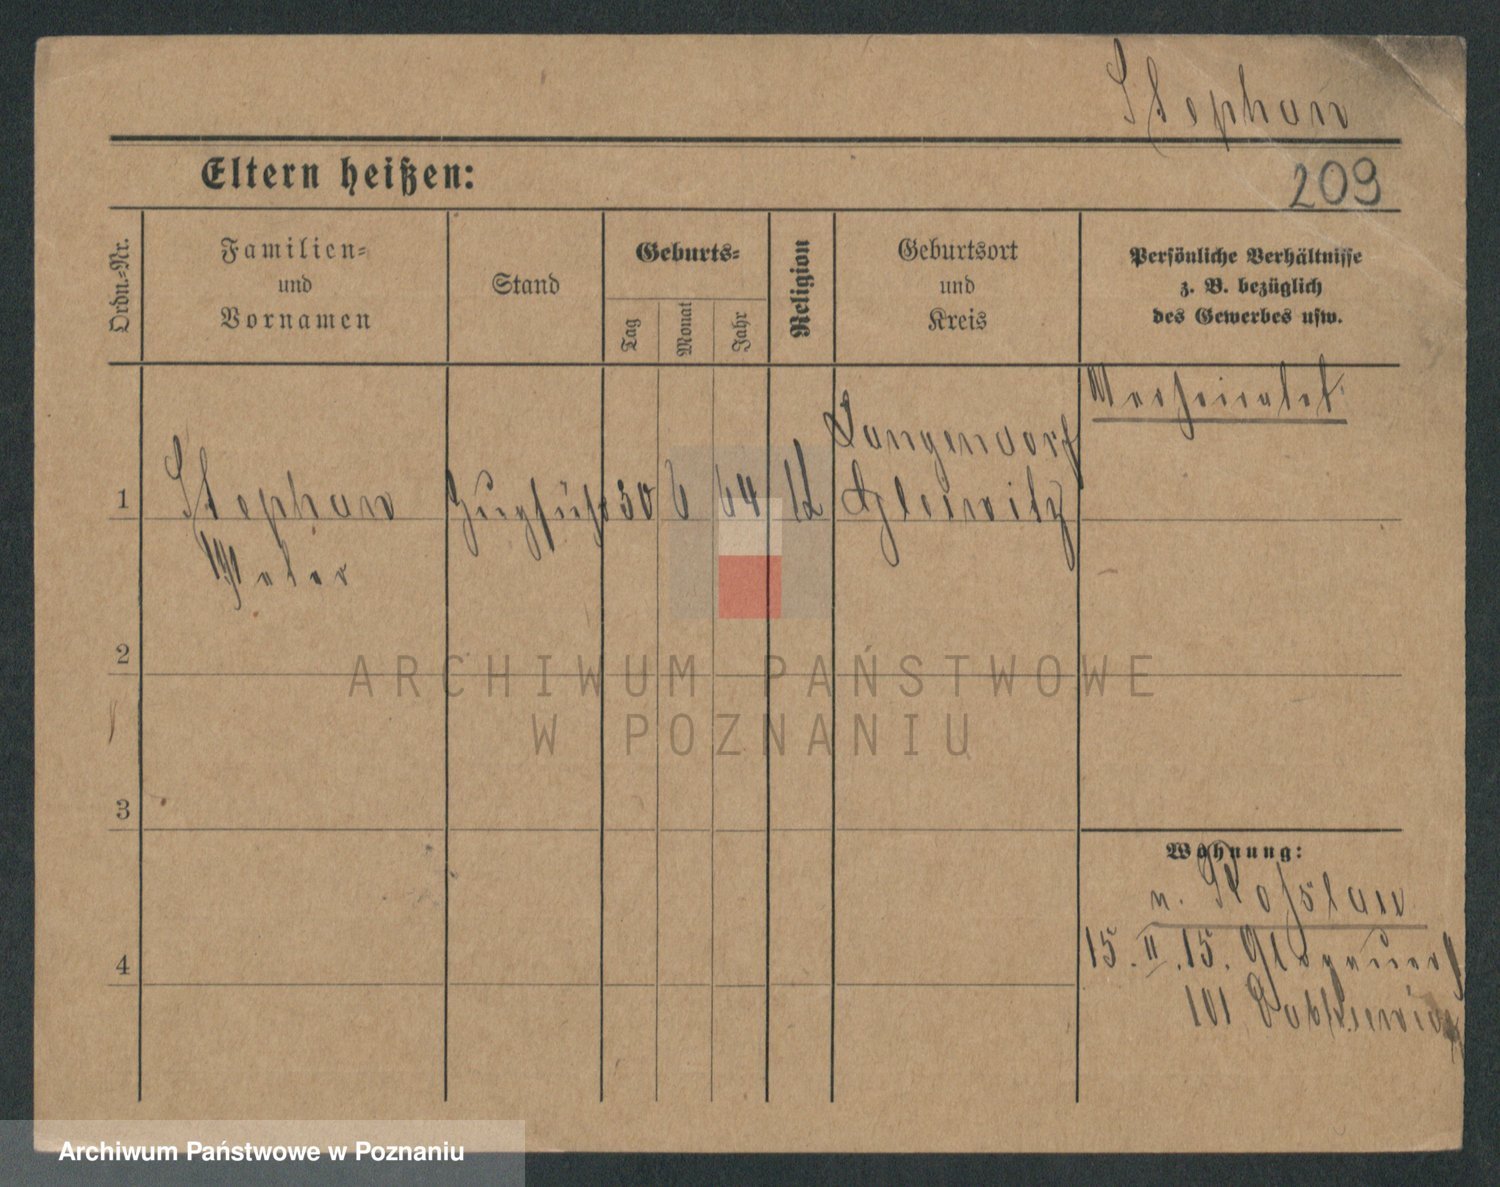 Stephan
Eltern heißen:
209
Ordn.-Nr.
Familien-
und
Vornamen
Stand
Geburts-
Tag
Monat
Jahr
Religion
Geburtsort
und
Kreis
Persönliche Verhältnisse
z. B. bezüglich
des Gewerbes usw.
Verheiratet
Langendorf
1
Stephan
Zugfüh
30
6
64
Gleiwitz
Peter
2
3
4
Wohnung:
n. Roßlau
15. II. 15.
101
ARCHIWUM PAŃSTWOWE
W POZNANIU
Archiwum Państwowe w Poznaniu